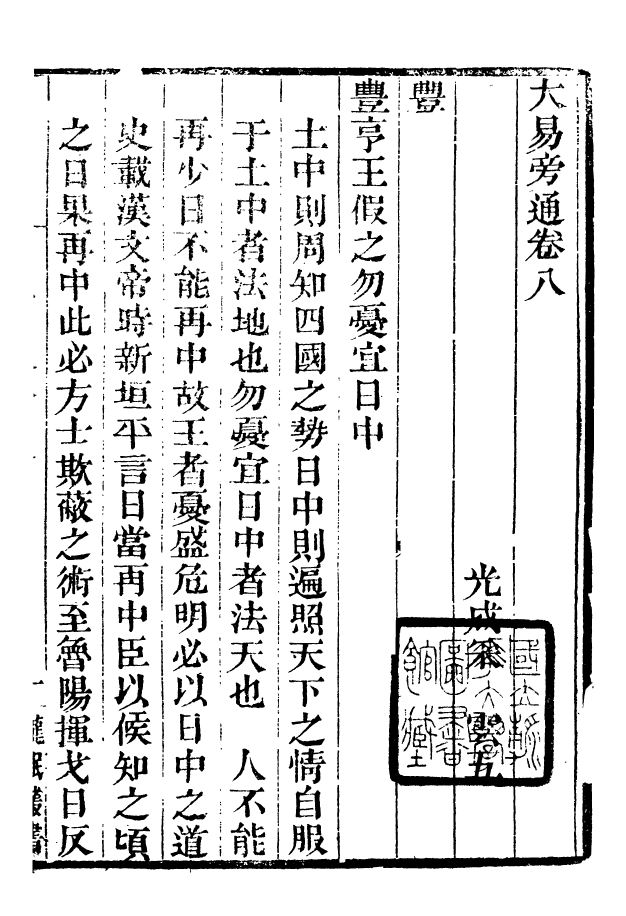 大易旁通卷八
光成采 雲五
豐
豐亨王假之勿憂宜日中
土中則周知四國之勢日中則遍照天下之情自服
于土中者法地也勿憂宜日中者法天也 人不能
再少日不能再中故王者憂盛危明必以日中之道
史載漢文帝時新垣平言日當再中臣以候知之頃
之日果再中此必方士欺蔽之術至魯陽揮戈日反
一 龍眠叢書
國立
大學
圖書
館藏